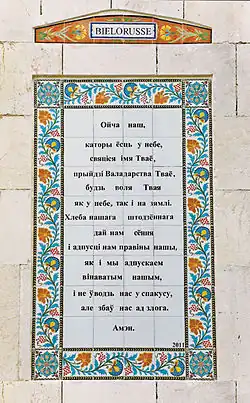 BIELORUSSE
Ойча наш,
каторы ёсць у небе,
свяціся імя Тваё,
прыйдзі Валадарства Тваё,
будзь воля Твая
як у небе, так і на зямлі.
Хлеба нашага штодзённага
дай нам сёння
і адпусці нам правіны нашы,
як і мы адпускаем
вінаватым нашым,
і не ўводзь нас у спакусу,
але збаў нас ад злога.
Амэн.
2011